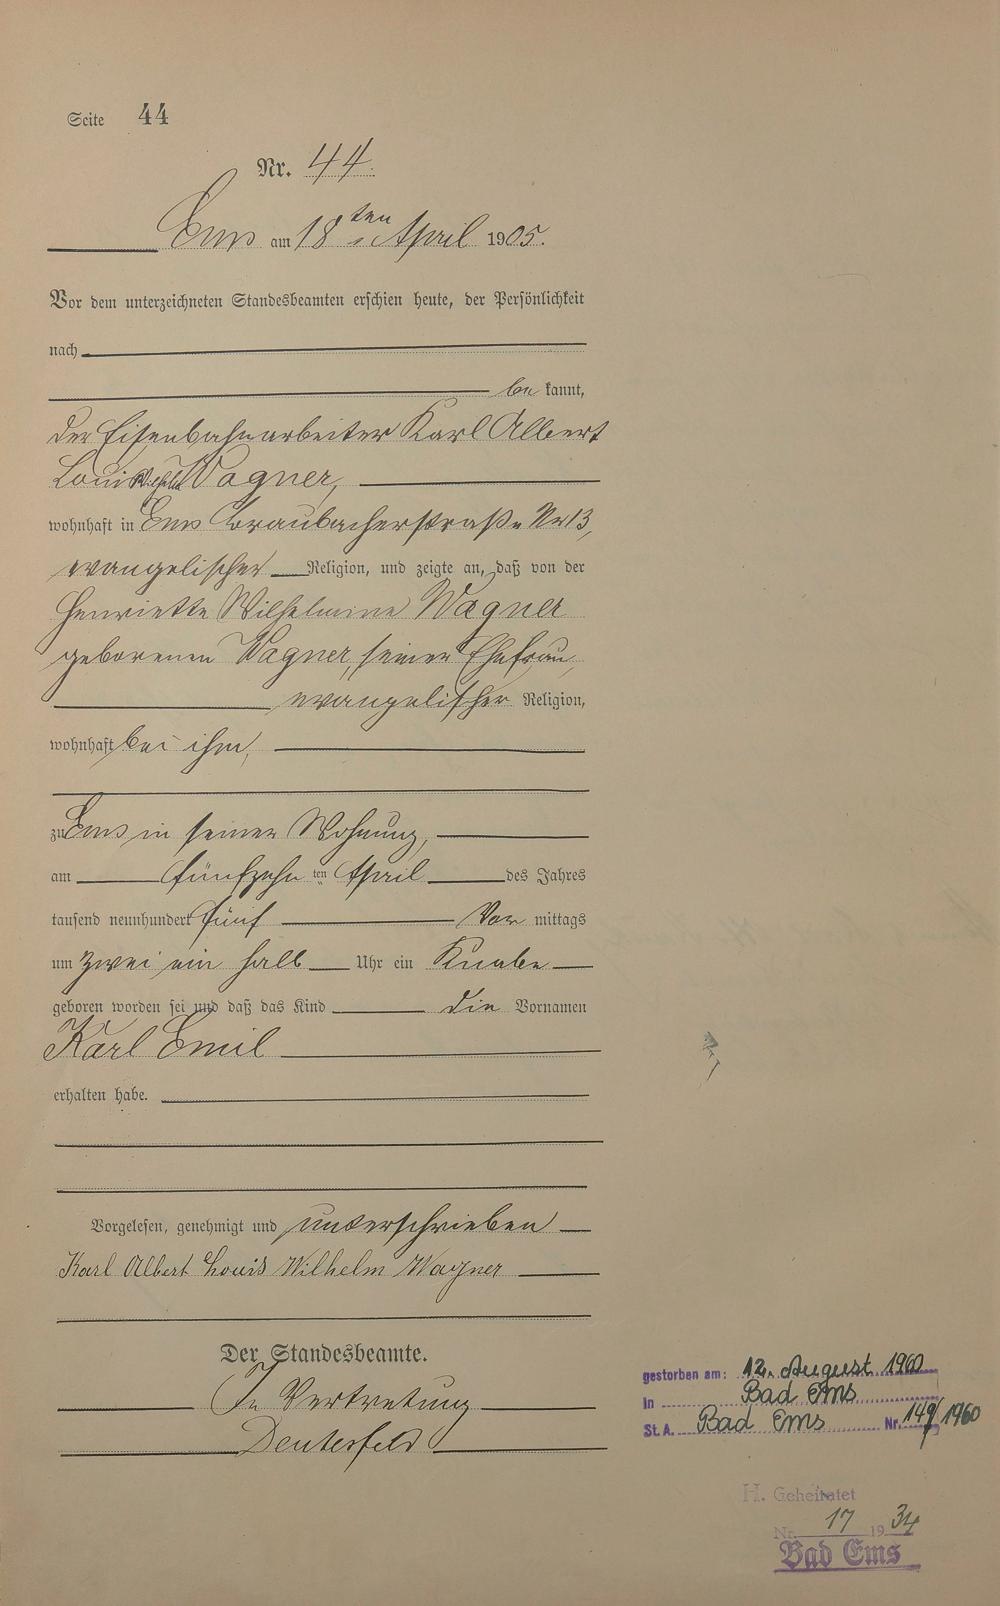 Seite 44
Nr. 44.
Ems am 18ten April 1905.
Vor dem unterzeichneten Standesbeamten erschien heute, der Persönlichkeit
nach
be kannt,
der Eisenbahnarbeiter Karl Albert
Louis Wilhelm Wagner,
wohnhaft in Ems Braubacherstraße Nr 13,
evangelischer Religion, und zeigte an, daß von der
Henriette Wilhelmine Wagner
geborenen Wagner, seiner Ehefrau,
evangelischer Religion,
wohnhaft bei ihm,
zu Ems in seiner Wohnung,
am fünfzehn ten April des Jahres
tausend neunhundert fünf Vor mittags
um zwei ein halb Uhr ein Knabe
geboren worden sei und daß das Kind die Vornamen
Karl Emil
erhalten habe.
Vorgelesen, genehmigt und unterschrieben
Karl Albert Louis Wilhelm Wagner
Der Standesbeamte.
In Vertretung
gestorben am: 12. August 1960
In Bad Ems
St.A. Bad Ems Nr. 149/1960
H. Geheiratet
Nr. 17 1934
Bad Ems